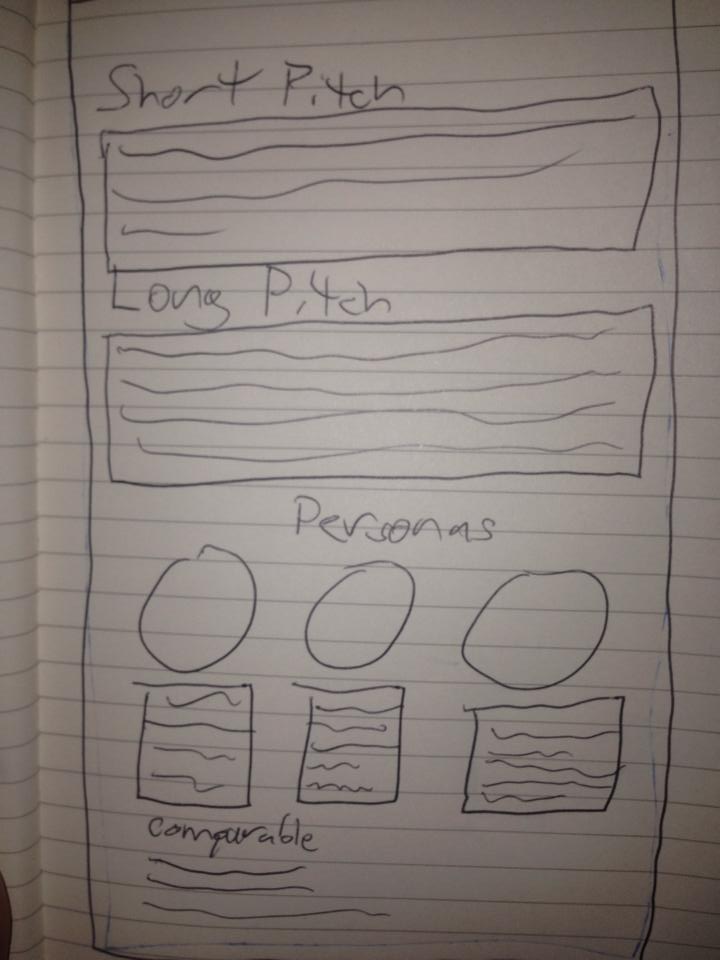 Short Pitch
Long Pitch
Personas
comparable